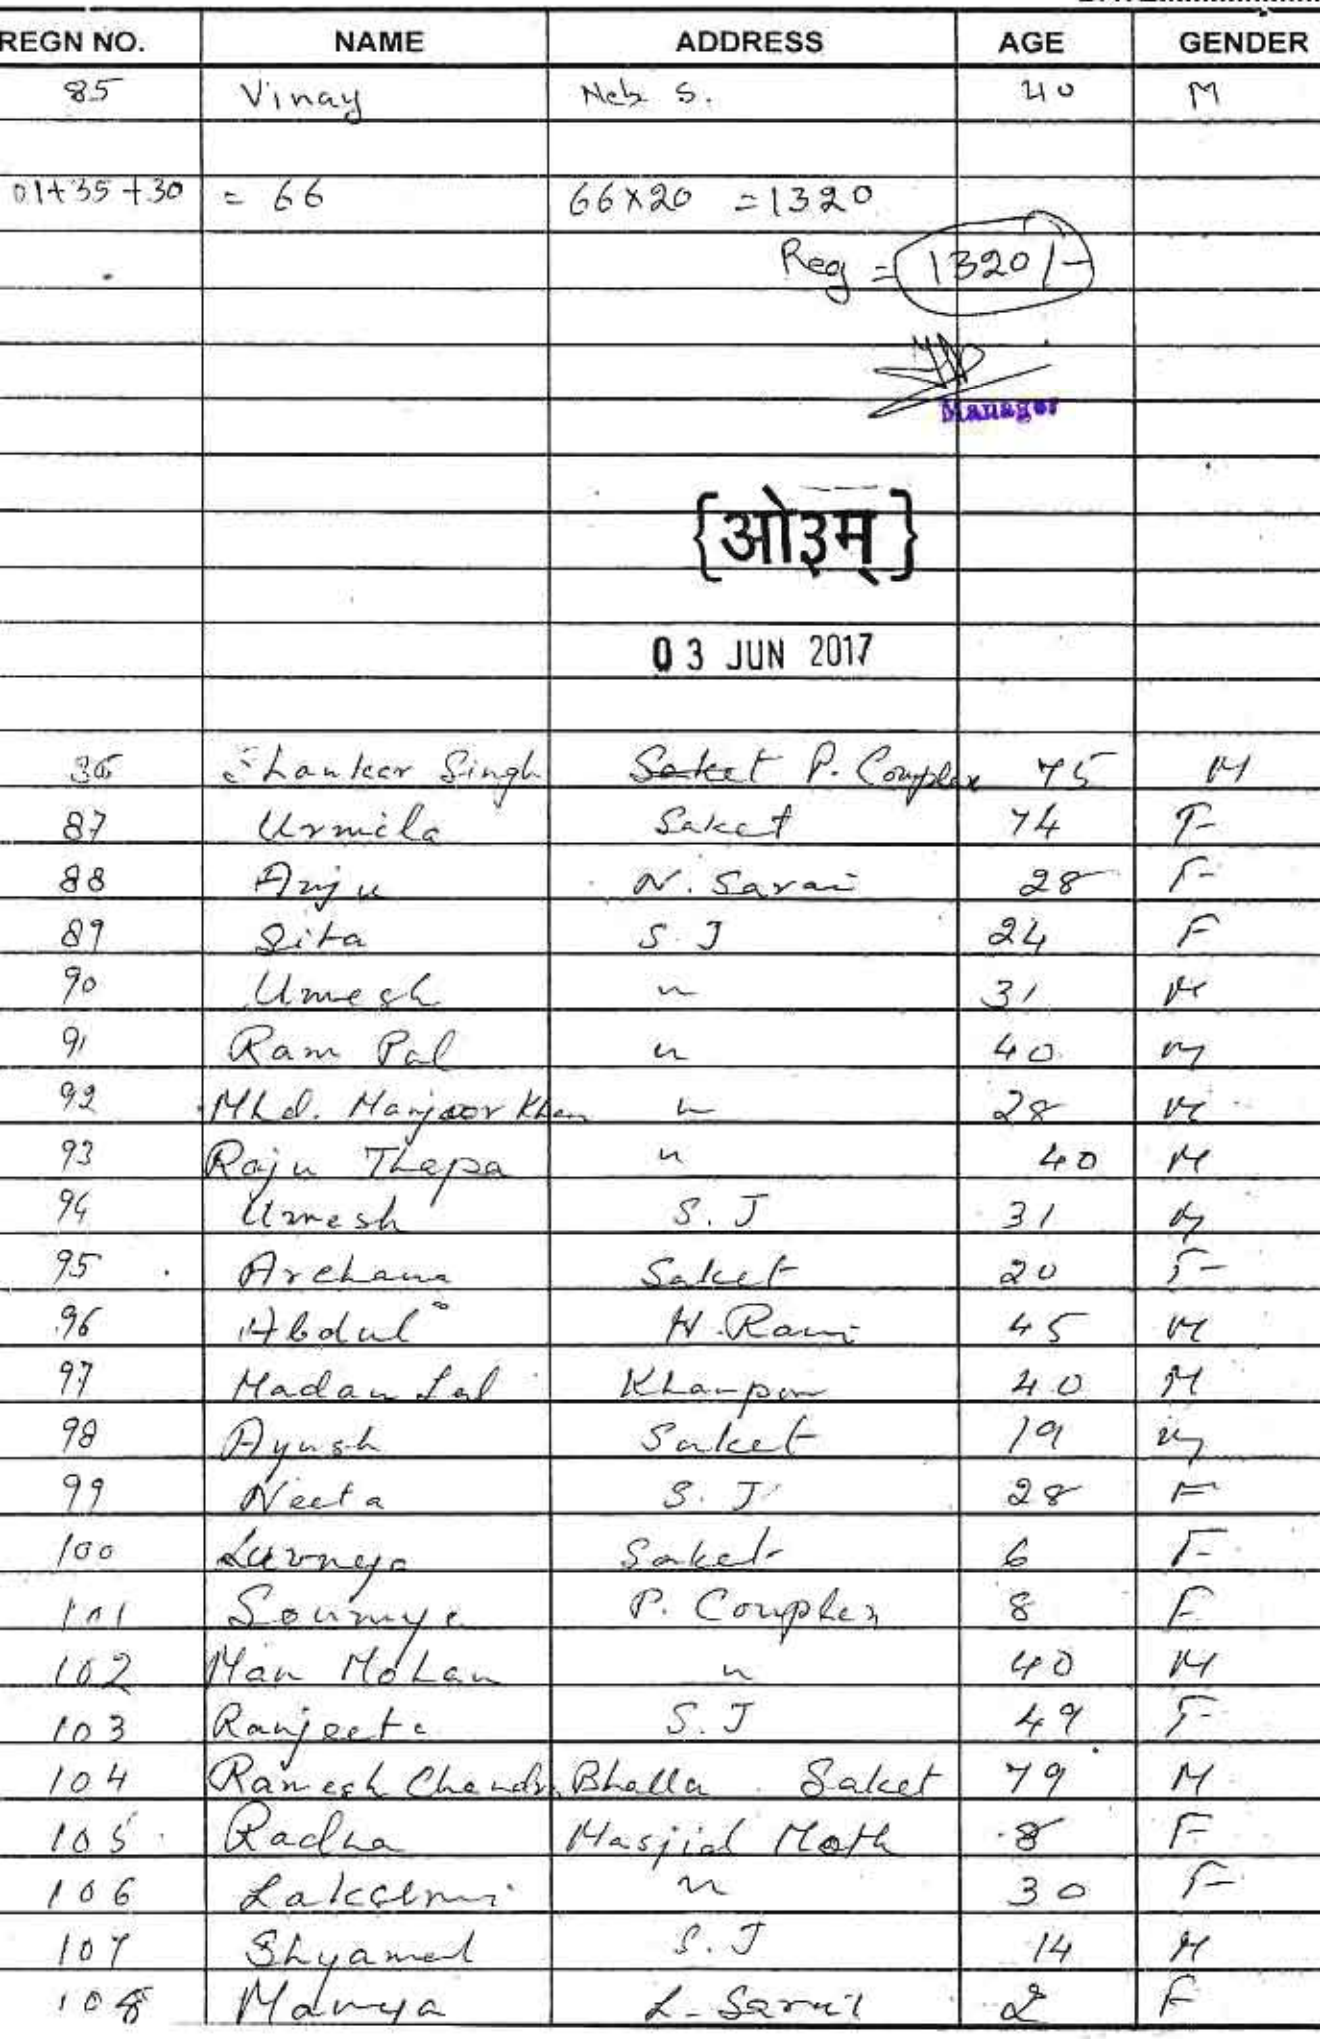 REGN NO. NAME ADDRESS AGE GENDER
85 Vinay Neb S. 40 M
01+35+30 = 66 66x20 =1320
Reg = 1320/-
Manager
{ओ३म्}
03 JUN 2017
Shanker Singh Saket P. Complex 75 M
87 Urmila Saket 74 F
88 Anju N. Sarai 28 F
89 Sita S.J 24 F
90 Umesh " 31 M
91 Ram Pal " 40 M
92 Mhd. Manjoor Khan " 28 M
93 Raju Thapa " 40 M
94 Umesh S.J 31 M
95 Archana Saket 20 F
96 Abdul H. Rani 45 M
97 Madan Lal Khanpur 40 M
98 Ayush Saket 19 M
99 Neeta S.J 28 F
100 Lavneya Saket 6 F
101 Soumya P. Complex 8 F
102 Man Mohan " 40 M
103 Ranjeeta S.J 49 F
104 Ramesh Chandr Bhalla Saket 79 M
105 Radha Masjid Moth 8 F
106 Lakshmi " 30 F
107 Shyamal S.J 14 M
108 Manya L. Sarai 2 F